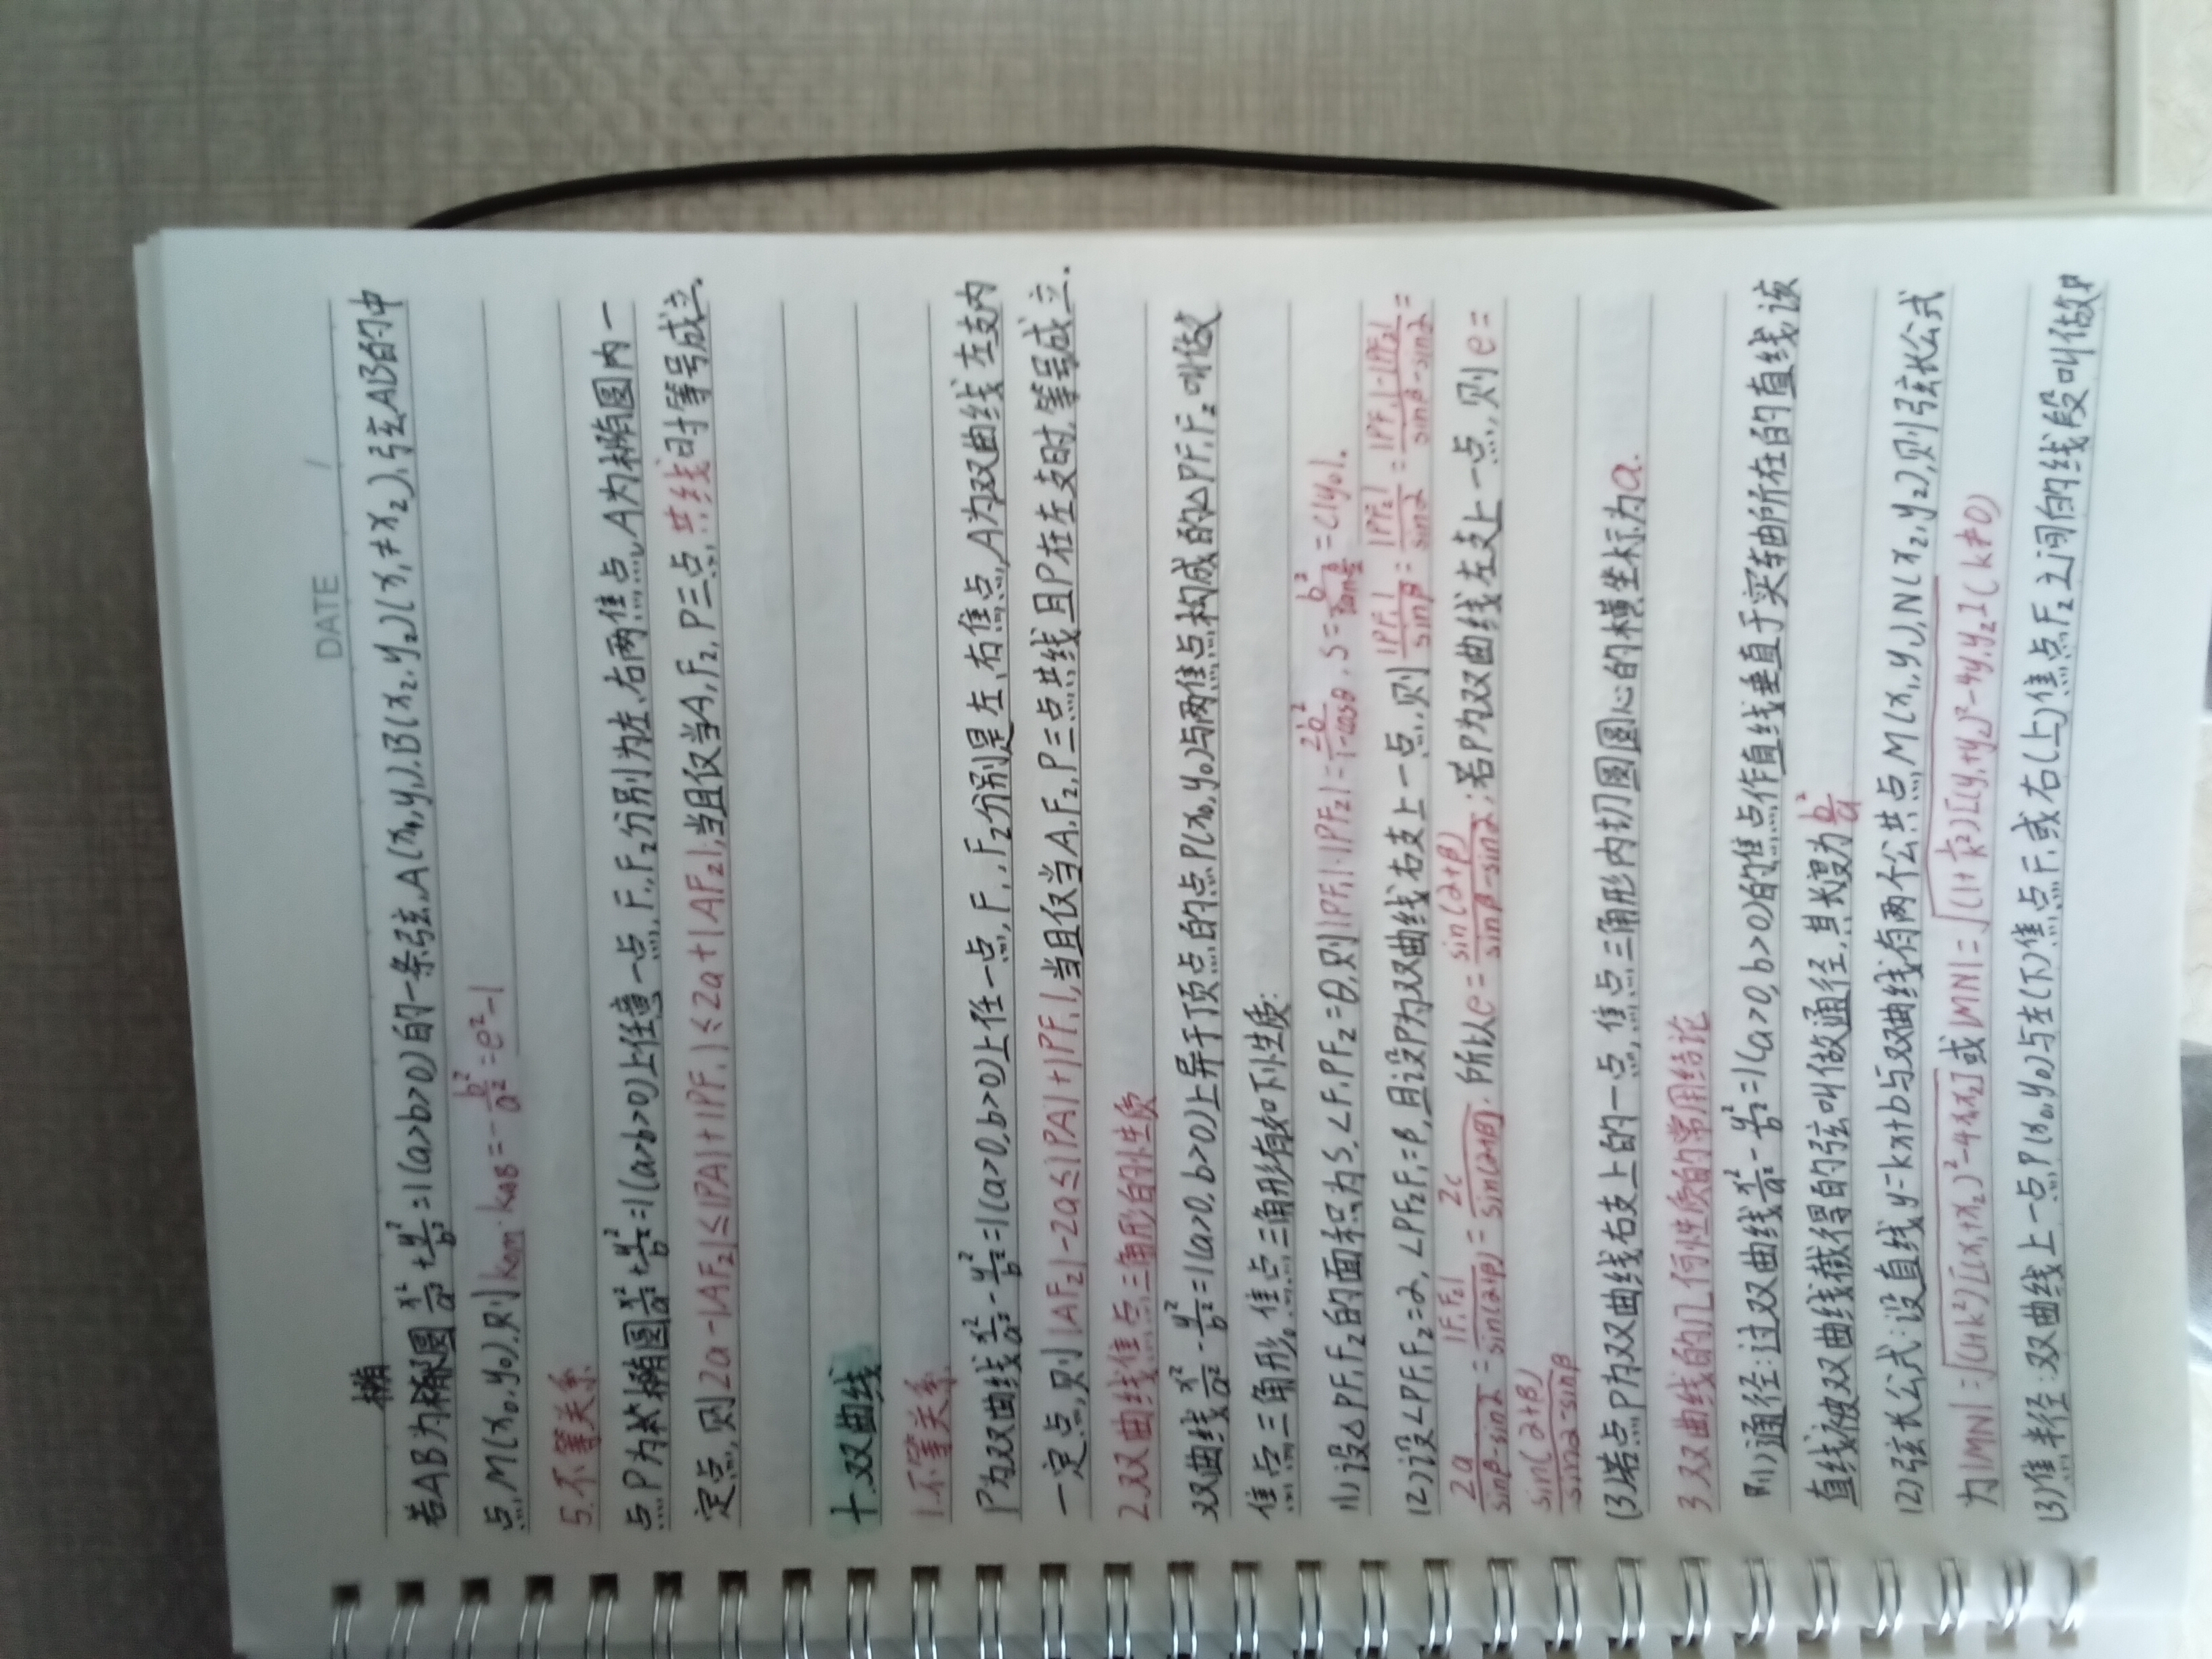 DATE /
若AB为椭圆x²/a²+y²/b²=1(a>b>0)的一条弦,A(x₁,y₁),B(x₂,y₂)(x₁≠x₂),弦AB的中
点M(x₀,y₀),则k_OM·k_AB=-b²/a²=e²-1
5.不等关系
点P为椭圆x²/a²+y²/b²=1(a>b>0)上任意一点,F₁,F₂分别为左、右两焦点,A为椭圆内一
定点,则2a-|AF₂|≤|PA|+|PF₁|≤2a+|AF₂|,当且仅当A,F₂,P三点共线时等号成立.
十.双曲线
1.不等关系
P为双曲线x²/a²-y²/b²=1(a>0,b>0)上任一点,F₁,F₂分别是左、右焦点,A为双曲线左支内
一定点,则|AF₂|-2a≤|PA|+|PF₁|,当且仅当A,F₂,P三点共线且P在左支时,等号成立.
2.双曲线焦点三角形的性质
双曲线x²/a²-y²/b²=1(a>0,b>0)上异于顶点的点P(x₀,y₀)与两焦点构成的△PF₁F₂叫做
焦点三角形。焦点三角形有如下性质:
(1)设△PF₁F₂的面积为S,∠F₁PF₂=θ,则|PF₁|·|PF₂|=2b²/(1-cosθ),S=b²/tan(θ/2)=c|y₀|.
(2)设∠PF₁F₂=α,∠PF₂F₁=β,且设P为双曲线右支上一点,则|PF₁|/sinβ=|PF₂|/sinα=(|PF₁|-|PF₂|)/(sinβ-sinα)=
2a/(sinβ-sinα)=|F₁F₂|/sin(α+β)=2c/sin(α+β),所以e=sin(α+β)/(sinβ-sinα);若P为双曲线左支上一点,则e=
sin(α+β)/(sinα-sinβ)
(3)若点P为双曲线右支上的一点,焦点三角形内切圆圆心的横坐标为a.
3.双曲线的几何性质的常用结论
(1)通径:过双曲线x²/a²-y²/b²=1(a>0,b>0)的焦点作直线垂直于实轴所在的直线该
直线被双曲线截得的弦叫做通径,其长度为b²/a
(2)弦长公式:设直线y=kx+b与双曲线有两个公共点M(x₁,y₁),N(x₂,y₂),则弦长公式
为|MN|=√((1+k²)[(x₁+x₂)²-4x₁x₂])或|MN|=√((1+1/k²)[(y₁+y₂)²-4y₁y₂])(k≠0)
(3)焦半径:双曲线上一点P(x₀,y₀)与左(下)焦点F₁或右(上)焦点F₂之间的线段叫做